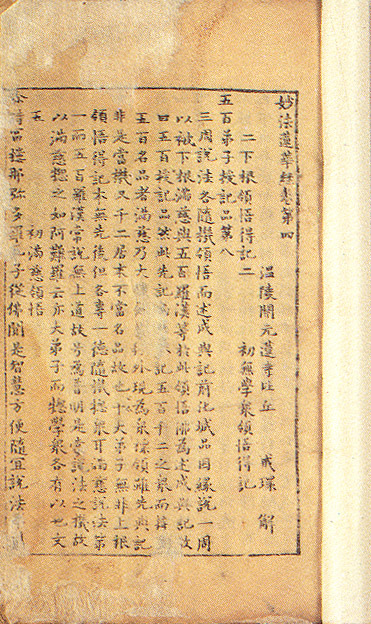 妙法蓮華經卷第四
溫陵開元蓮寺比丘 戒環 解
二下根領悟得記二 初無學衆領悟得記
五百弟子授記品第八
三周說法各隨機領悟而述成與記前化城品因緣說一周
以被下根滿慈與五百羅漢等於此領悟佛爲述成與記故
曰五百授記品然此先記滿慈 記五百千二之衆而
五百名品者滿慈乃大 外現爲衆深領雖先與記
非是當機又千二居末不當名品故也十大弟子無非上根
領悟得記本無先後但各專一德隨機摠衆耳滿慈說法第
一而五百羅漢常說無上道故号爲普明是 說法之機故
以滿慈摠之如阿難羅云亦大弟子而摠學衆各有以也文
五 初滿慈領悟
尒時富樓那彌多羅尼子從佛聞是智慧方便隨宜說法